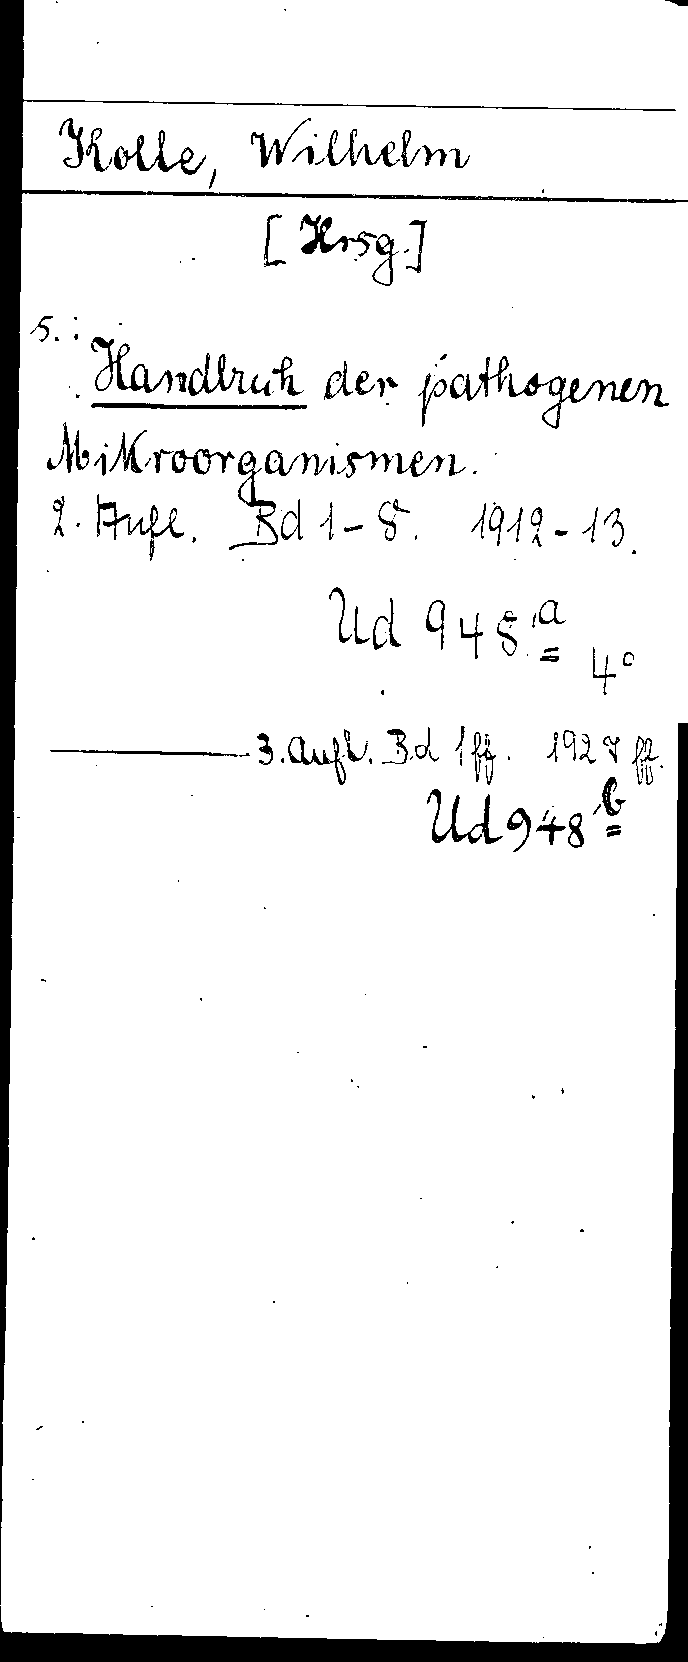 Kolle, Wilhelm
[Hrsg.]
s.:
Handbuch der pathogenen
Mikroorganismen.
2. Aufl. Bd 1-8. 1912-13.
Ud 948 a
=
4°
3. Aufl. Bd 1ff. 1927ff.
Ud 948 b
=